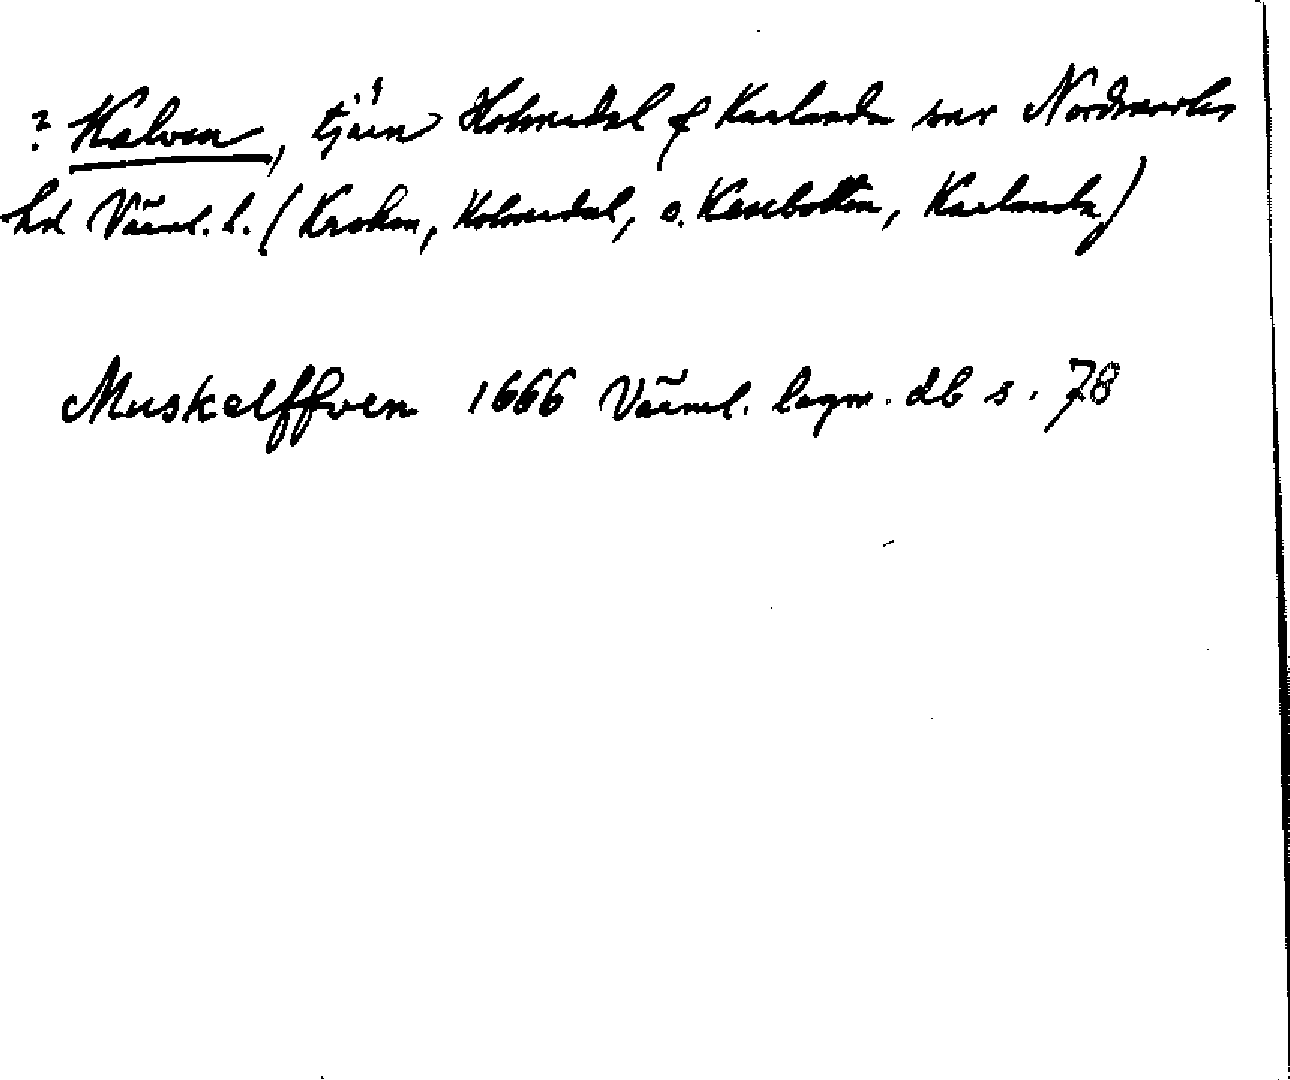 ? Kalven, tjärn i Holmedal o Karlanda snr Nordmarks
hd Värml. l. (Kroken, Holmedal, o. Kasebotten, Karlanda)
Muskelffven 1666 Värml. lagm. db s. 78